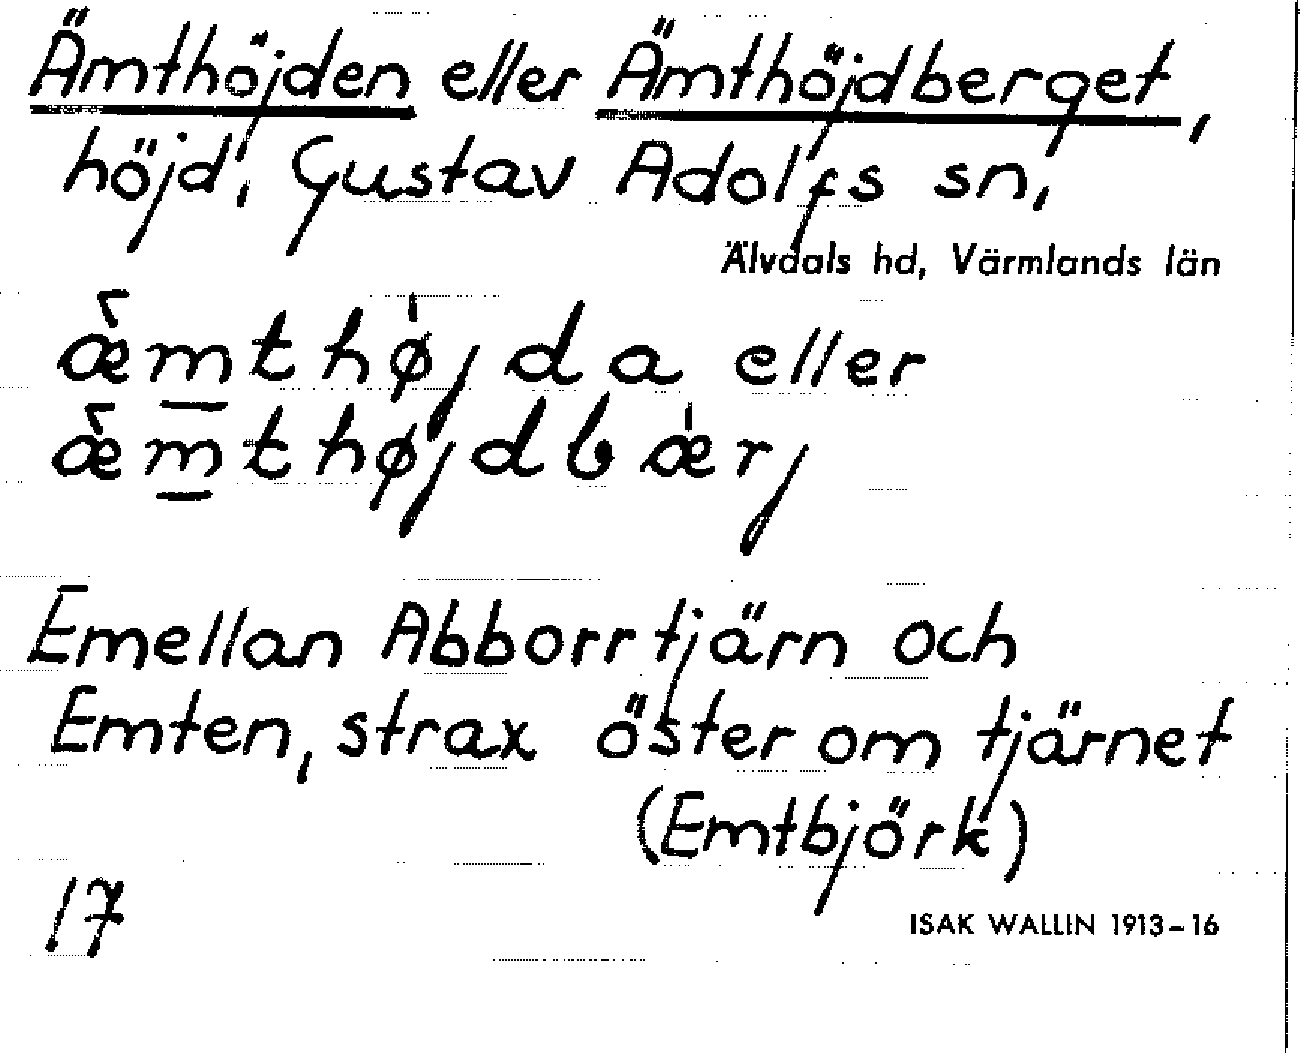 Ämthöjden eller Ämthöjdberget,
höjd, Gustav Adolfs sn,
Älvdals hd, Värmlands län
æ̀m̲thø̍jda eller
æ̀m̲thøjdbæ̍rj
Emellan Abborrtjärn och
Emten, strax öster om tjärnet
(Emtbjörk)
17
ISAK WALLIN 1913-16